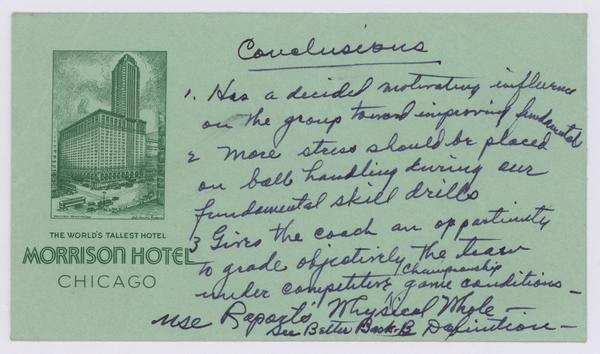 Conclusions
1. Has a decided motivating influence
on the group toward improving fundamental
2 More stress should be placed
on ball handling during our
fundamental skill drills
3 Gives the coach an opportunity
to grade objectively the team
Championship
under competitive game conditions —
use Raport's Whysical Whole —
See Better Bask-B Definition —
THE WORLD'S TALLEST HOTEL
MORRISON HOTEL
CHICAGO